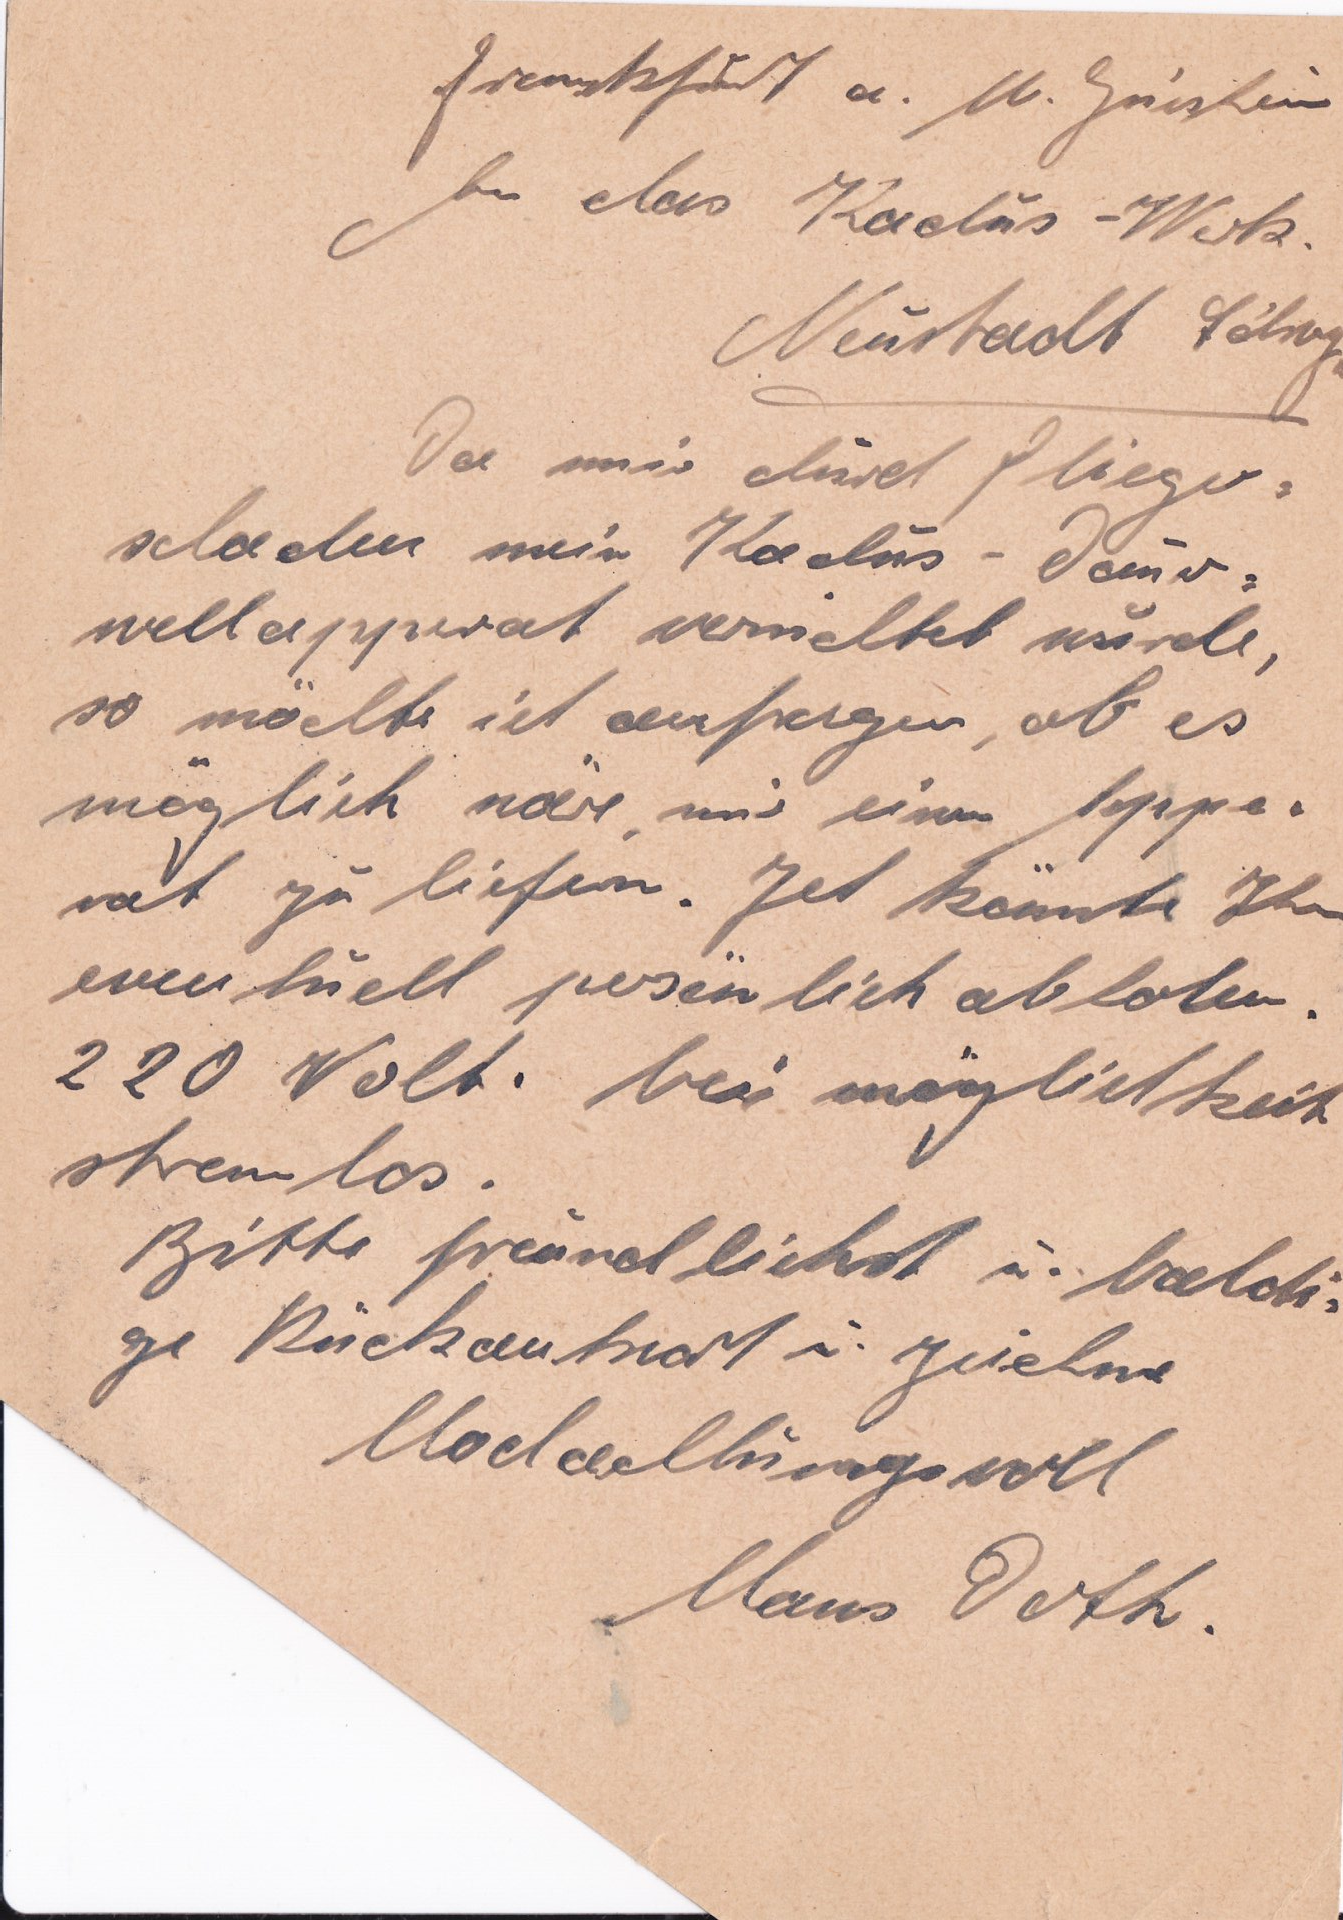 Frankfurt a. M. Griesheim
An das Kadus-Werk.
Neustadt
Da mir durch Flieger=
schaden mein Kadus-Dauer=
wellapperat vernichtet wurde,
so möchte ich anfragen, ob es
möglich wäre, mir einen Appa=
rat zu liefern. Ich könnte Ihn
eventuell persönlich abholen.
220 Volt. bei möglichkeit
stromlos.
Bitte freundlichst u. baldi=
ge Rückantwort u. zeichne
Hochachtungsvoll
Hans Orth.